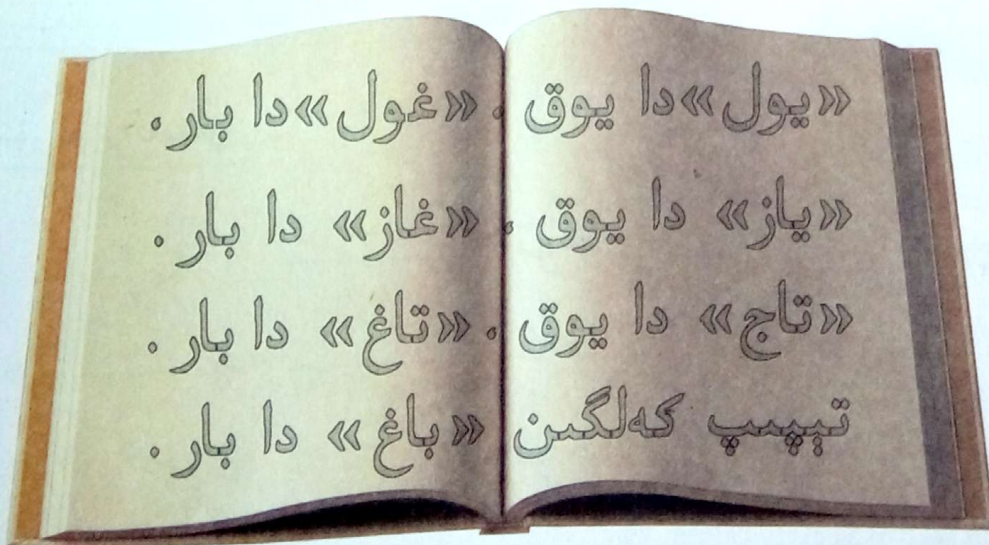 «یول»دا یوق ، «غول»دا بار ،
«یاز» دا یوق ، «غاز» دا بار .
«تاج» دا یوق ، «تاغ» دا بار .
تبپىپ كەلگىن «باغ» دا بار .